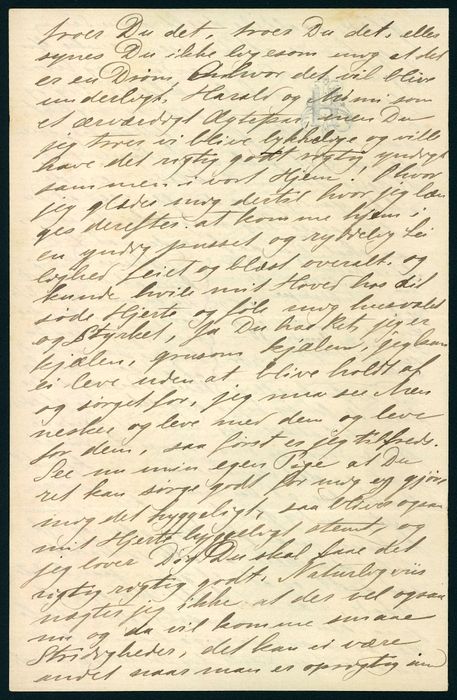 troer Du det, troer Du det, eller
synes Du ikke ligesom mig at det
er en Drøm, Endvor det vil blive
underligt, Harald og som
et ærværdigt Ægtepar, men Du
jeg troer vi blive lykkelige og ville
have det rigtig godt rigtig yndigt
sammen i vort Hjem! O hvor
jeg glæder mig dertil hvor jeg læn
ges derefter at komme hjem i
en yndig pudset og ryddelig Lei
lighed feiet og blæst overalt og
kunde hvile mit Hoved hos dit
søde Hjerte og føle mig husvalet
og styrket, Ja Du har Ret, jeg er
kjælen, grusom kjælen, jeg kan
ei leve uden at blive holdt af
og sørget for, jeg maa see Men
nesker og leve med dem og leve
for dem, saa først er jeg tilfreds.
See nu min egen Pige at Du
ret kan sørge godt for mig og gjøre
mig det hyggeligt, saa bliver ogsaa
mit Hjerte hyggeligt stemt, og
jeg lover Dig Du skal faae det
rigtig rigtig godt. Naturligviis
nægter jeg ikke at der vel ogsaa
nu og da vil komme smaae
Stridigheder, det kan ei være
andet naar man er oprigtig imod